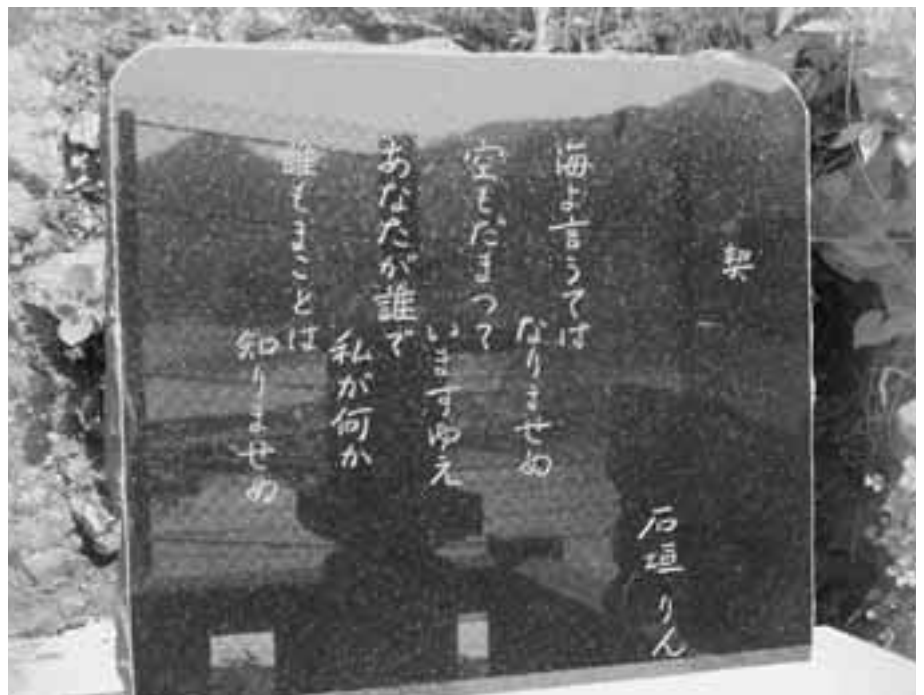 契
石垣りん
海よ言うては
なりませぬ
空もだまつて
いますゆえ
あなたが誰で
私が何か
誰もまことは
知りませぬ